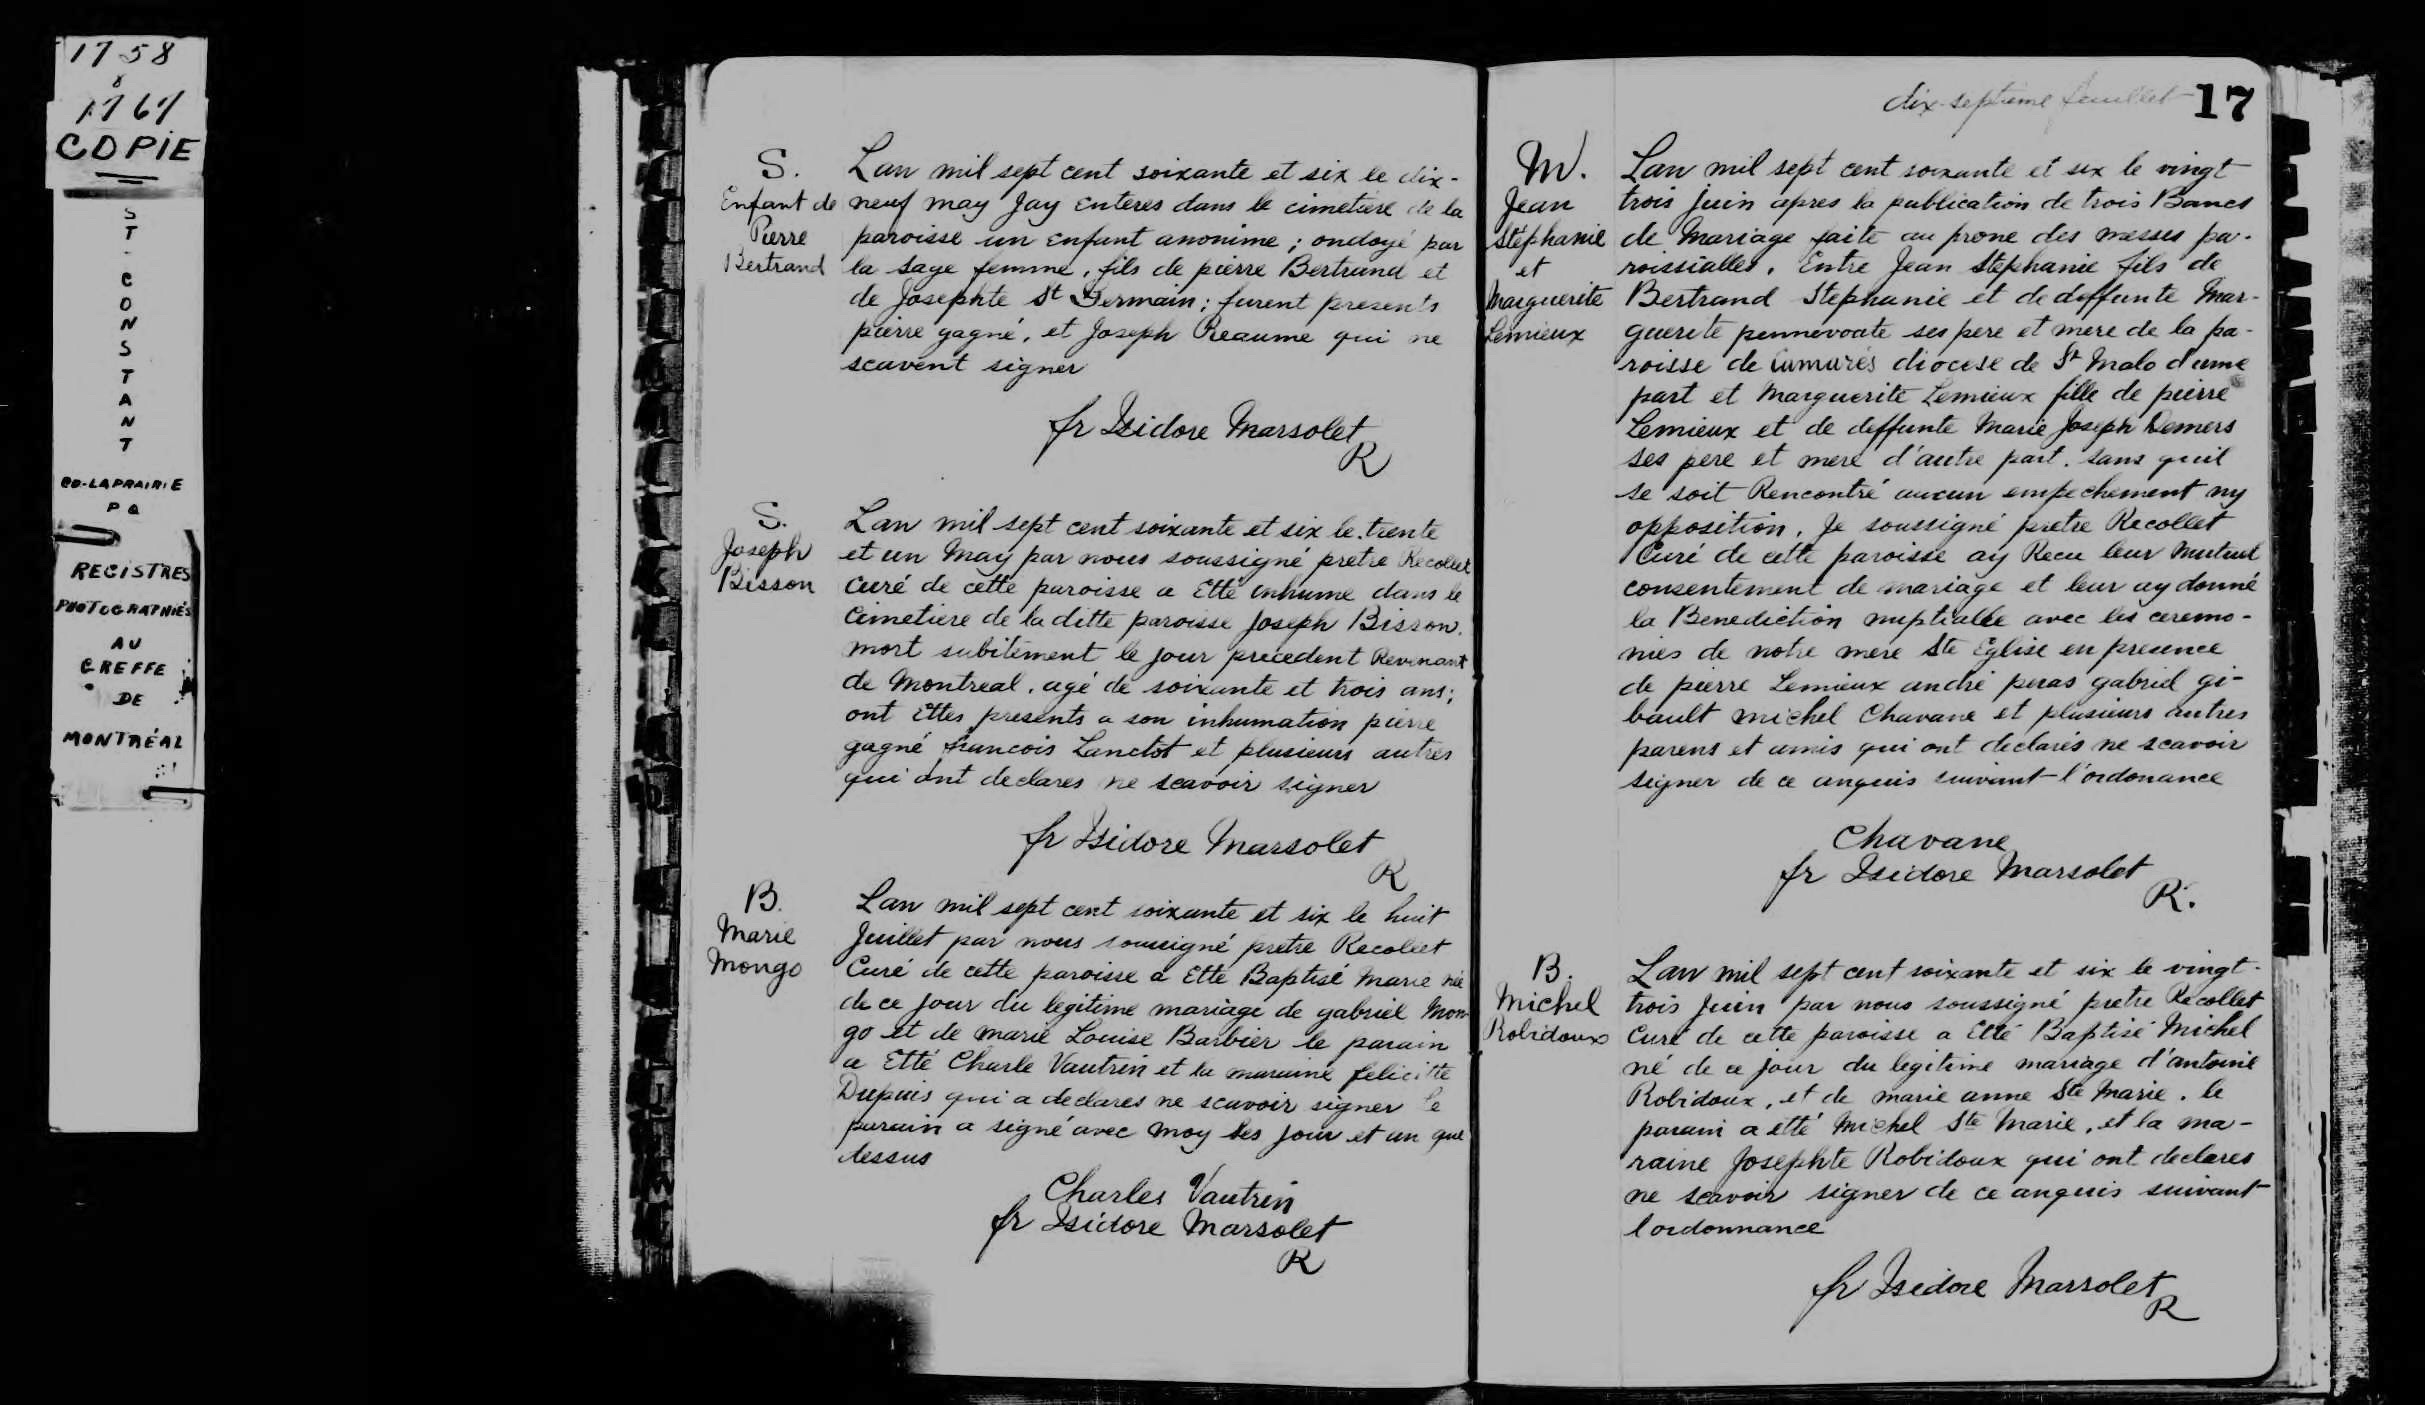 1758
&
1767
COPIE
ST-CONSTANT
CO-LAPRAIRIE
PQ
REGISTRES
PHOTOGRAPHIÉS
AU
GREFFE
DE
MONTRÉAL
S.
Enfant de
Pierre
Bertrand
Lan mil sept cent soixante et six le dix-
neuf may Jay enteres dans le cimetiere de la
paroisse un enfant anonime ; ondoyé par
la sage femme, fils de pierre Bertrand et
de Josephte St Germain ; furent presents
pierre gagné, et Joseph Reaume qui ne
scavent signer
fr Isidore Marsolet
R
S.
Joseph
Bisson
Lan mil sept cent soixante et six le trente
et un May par nous soussigné pretre Recollet
curé de cette paroisse a Etté inhume dans le
Cimetiere de la ditte paroisse Joseph Bisson.
mort subitement le jour precedent Revenant
de Montreal, agé de soixante et trois ans ;
ont Ettes presents a son inhumation pierre
gagné francois Lanctot et plusieurs autres
qui ont declares ne scavoir signer
fr Isidore Marsolet
R
B.
Marie
Mongo
Lan mil sept cent soixante et six le huit
Juillet par nous soussigné pretre Recollet
Curé de cette paroisse a Etté Baptisé Marie née
de ce jour du legitime mariage de gabriel Mon-
go et de marie Louise Barbier le parain
a Etté Charle Vautrin et la maraine felicitte
Dupuis qui a declares ne scavoir signer le
parain a signé avec moy les jour et an que
dessus
Charles Vautrin
fr Isidore Marsolet
R
dix-septieme feuillet 17
M.
Jean
Stéphanie
et
Marguerite
Lemieux
Lan mil sept cent soixante et six le vingt
trois juin apres la publication de trois Bancs
de Mariage faite au prone des messes pa-
roissialles. Entre Jean Stephanie fils de
Bertrand Stephanie et de deffunte Mar-
guerite pennevoate ses pere et mere de la pa-
roisse de Camarés diocese de St Malo d'une
part et Marguerite Lemieux fille de pierre
Lemieux et de deffunte Marie Joseph Demers
ses pere et mere d'autre part. sans quil
se soit Rencontré aucun empechement ny
opposition. Je soussigné pretre Recollet
Curé de cette paroisse ay Recu leur mutuel
consentement de mariage et leur ay donné
la Benediction nuptialle avec les ceremo-
nies de notre mere Ste Eglise en presence
de pierre Lemieux andré peras gabriel gi-
bault michel Chavane et plusieurs autres
parens et amis qui ont declarés ne scavoir
signer de ce anquis suivant l'ordonance
Chavane
fr Isidore Marsolet
R.
B.
Michel
Robidoux
Lan mil sept cent soixante et six le vingt-
trois Juin par nous soussigné pretre Recollet
Curé de cette paroisse a Etté Baptisé Michel
né de ce jour du legitime mariage d'antoine
Robidoux, et de marie anne Ste Marie. le
parain a etté Michel Ste Marie, et la ma-
raine Josephte Robidoux qui ont declares
ne scavoir signer de ce anquis suivant
lordonnance
fr Isidore Marsolet
R